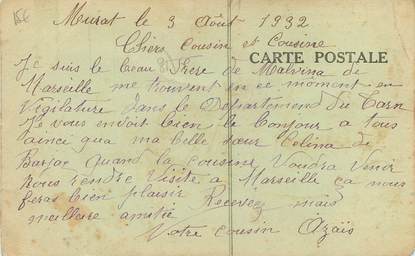 15€
Murat le 3 Août 1932
Chers Cousin et Cousine
CARTE POSTALE
Je suis le beau Frere de Malvina de
Marseille me trouvent en ce moment en
Vigilature dans le Département du Tarn
Je vous envoit bien le Bonjour a tous
ainci qua ma belle sœur Celina de
Barjac quand la cousine Voudra Venir
nous rendre Visite a Marseille ça nous
feras bien plaisir Recevez mais
meilleure amitié
Votre cousin Azaïs